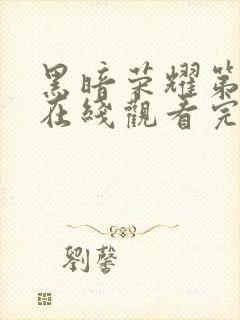 黑暗荣耀第
在綫觀看完
劉馨